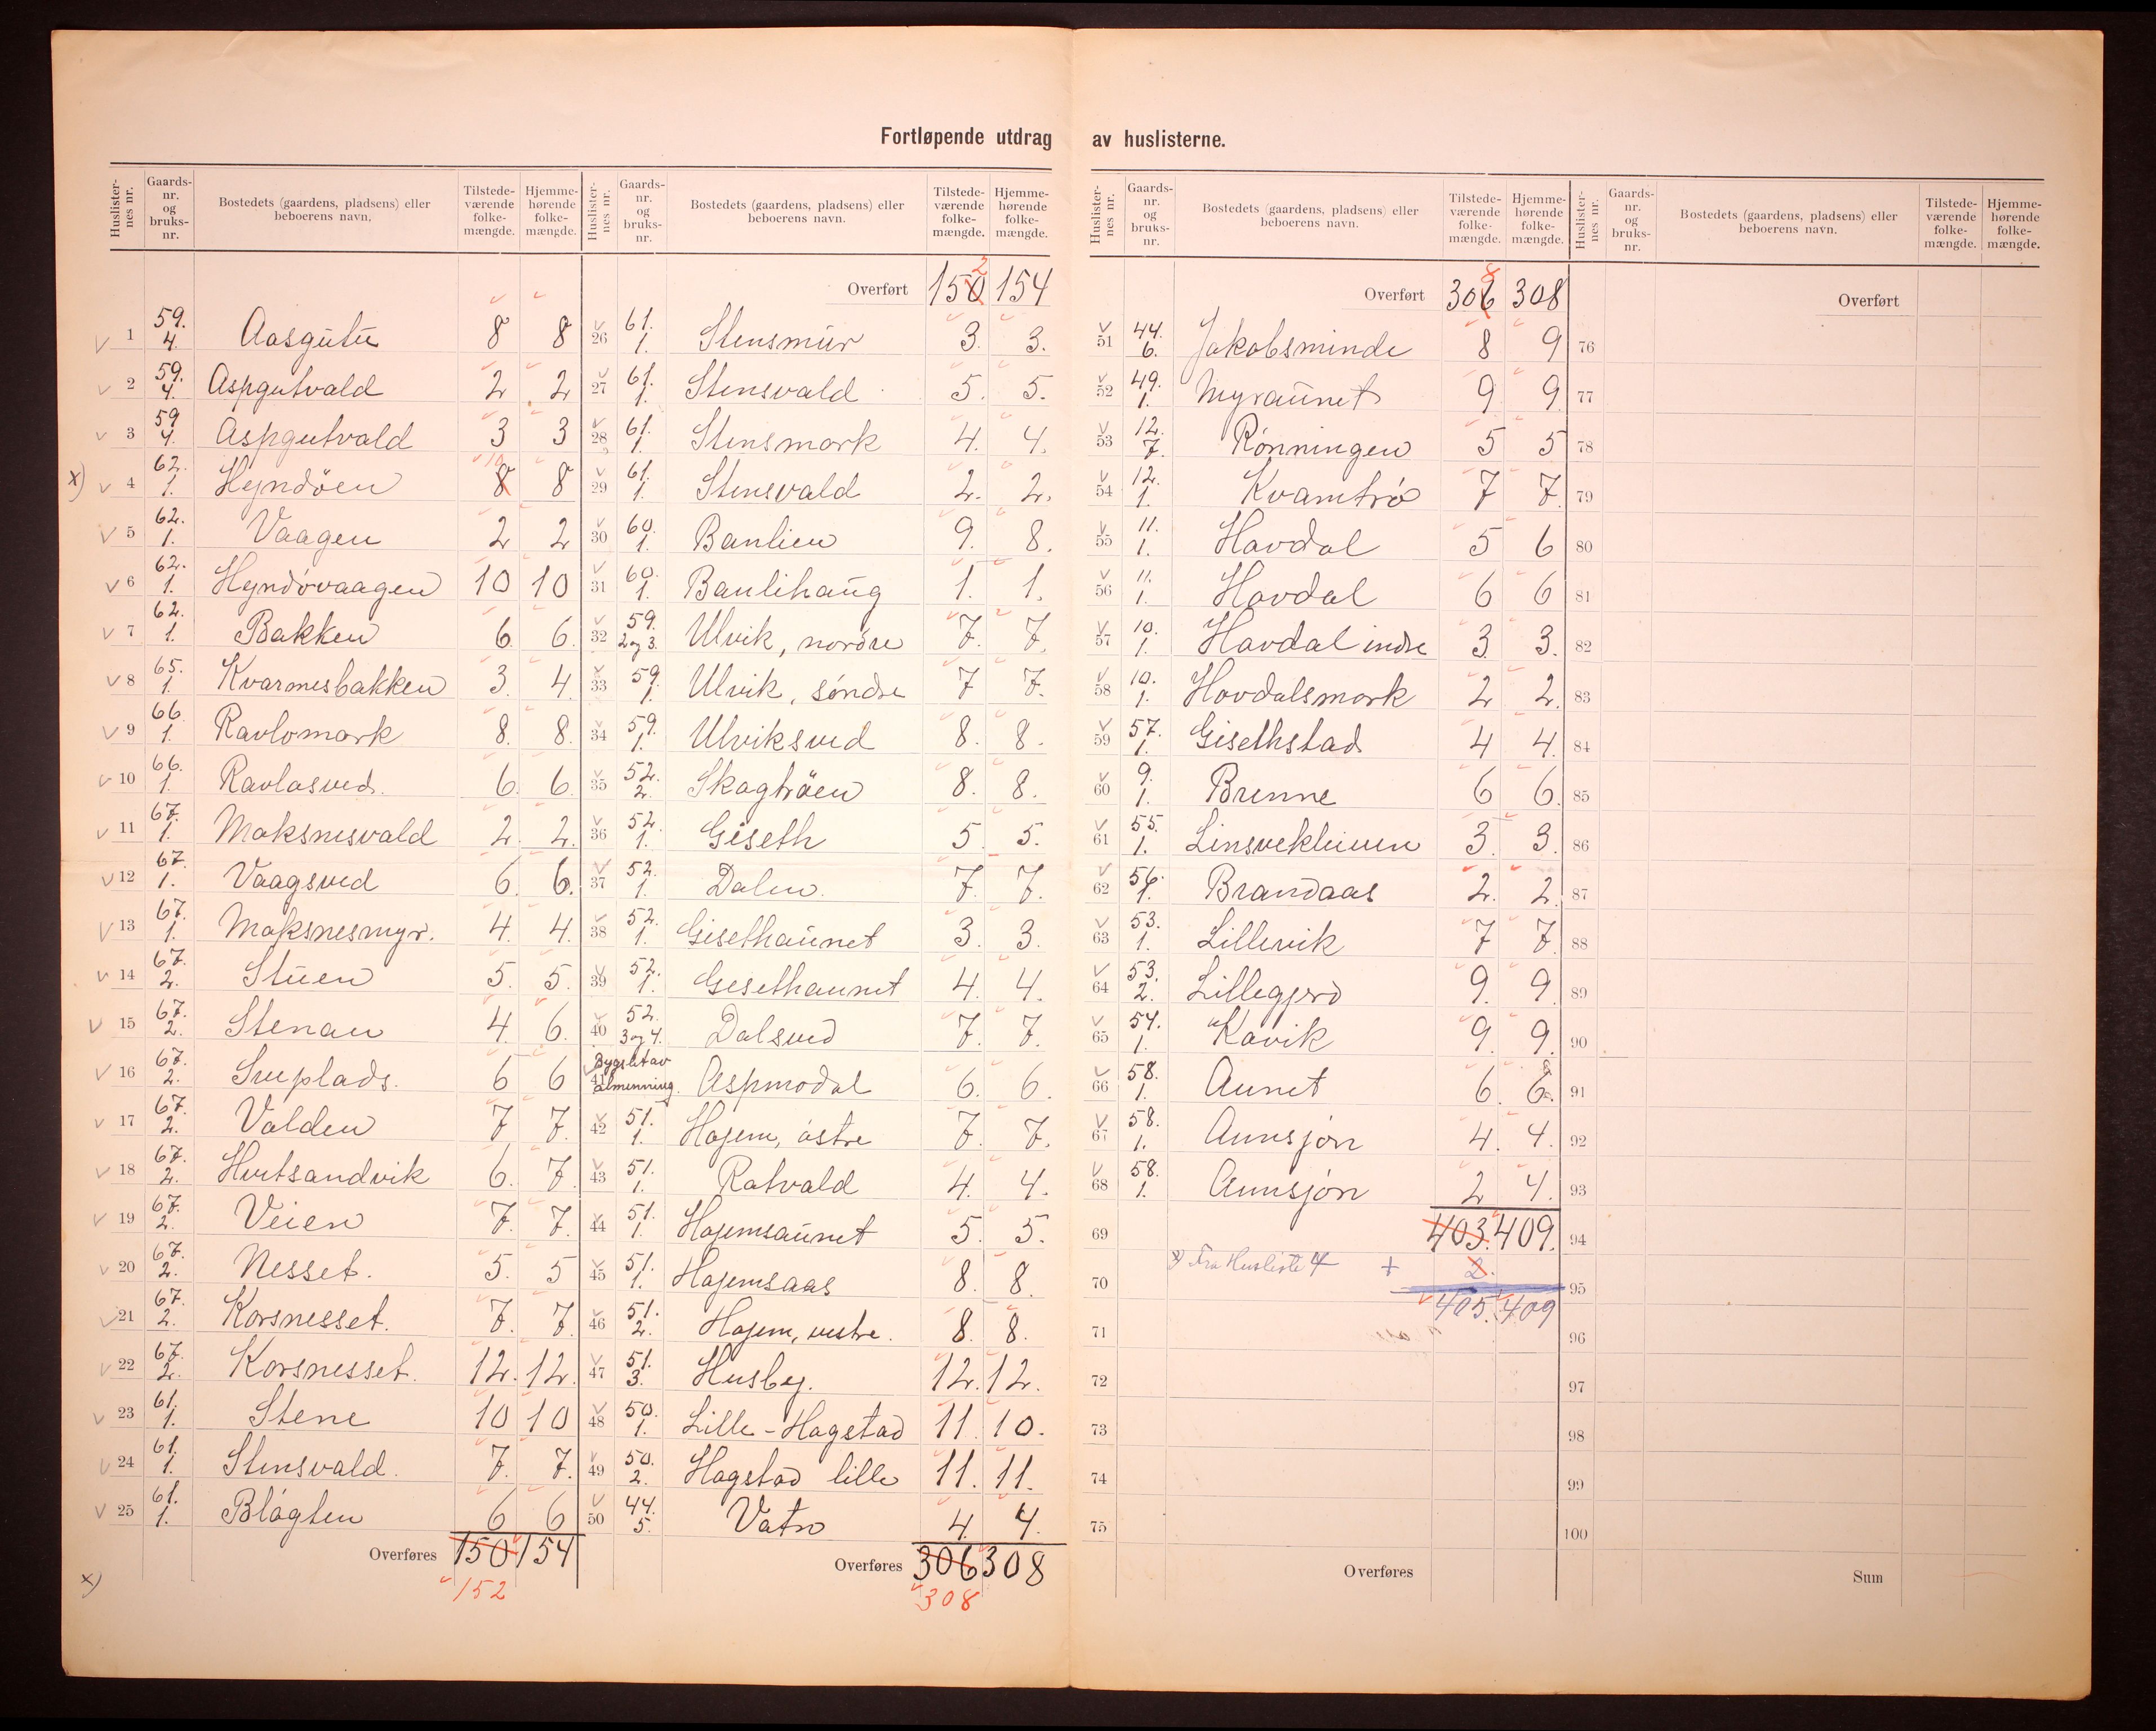 Fortløpende utdrag av huslisterne.
Huslisternes nr. Gaards-nr. og bruks-nr. Bostedets (gaardens, pladsens) eller beboerens navn. Tilstedeværende folkemængde. Hjemmehørende folkemængde.
1 59. 4. Aasgutu 8 8
2 59. 4. Aspgutvald 2 2
3 59 4. Aspgutvald 3 3
x) 4 62. 1. Hyndöen 8 10 8
5 62. 1. Vaagen 2 2
6 62. 1. Hyndøvaagen 10 10
7 62. 1. Bakken 6. 6.
8 65. 1. Kvarmesbakken 3. 4.
9 66. 1. Ravlomark 8. 8.
10 66. 1. Ravlasved. 6. 6.
11 67. 1. Maksnesvald 2. 2.
12 67. 1. Vaagsved 6. 6.
13 67. 1. Maksnesmyr. 4. 4.
14 67. 2. Stuen 5. 5.
15 67. 2. Stenan 4. 6.
16 67. 2. Sveplads. 6 6
17 67. 2. Valden 7 7.
18 67. 2. Hvitsandvik 6. 7.
19 67. 2. Veien 7. 7.
20 67. 2. Nesset. 5. 5
21 67. 2. Korsnesset. 7. 7.
22 67. 2. Korsnesset. 12. 12.
23 61. 1. Stene 10 10
24 61. 1. Stensvald. 7. 7.
25 61. 1. Bløgten 6 6
Overføres 150 154
x) 152
Huslisternes nr. Gaards-nr. og bruks-nr. Bostedets (gaardens, pladsens) eller beboerens navn. Tilstedeværende folkemængde. Hjemmehørende folkemængde.
Overført 150 2 154
26 61. 1. Stensmür 3. 3.
27 61. 1. Stensvald 5. 5.
28 61. 1. Stensmark 4. 4.
29 61. 1. Stensvald 2. 2.
30 60. 1. Banlien 9. 8.
31 60. 1. Banlihaug 1. 1.
32 59. 2 og 3. Ulvik, nordre 7. 7.
33 59. 1. Ulvik, søndre 7 7.
34 59. 1. Ulviksved 8. 8.
35 52. 2. Skogtröen 8. 8.
36 52. 1. Giseth 5. 5.
37 52. 1. Dalen. 7. 7.
38 52. 1. Gisethaunet 3. 3.
39 52. 1. Gisethaunet 4. 4.
40 52. 3 og 4. Dalsved 7. 7.
41 Bygslet av almenning. Aspmodal 6. 6.
42 51. 1. Hojem, östre 7. 7.
43 51. 1. Ratvald 4. 4.
44 51. 1. Hojemsaunet 5. 5.
45 51. 1. Hojemsaas 8. 8.
46 51. 2. Hojem, vestre. 8. 8.
47 51. 3. Husby. 12. 12.
48 50. 1. Lille-Hagstad 11. 10.
49 50. 2. Hagstad lille 11. 11.
50 44. 5. Vatn 4. 4.
Overføres 306 308
308
Huslisternes nr. Gaards-nr. og bruks-nr. Bostedets (gaardens, pladsens) eller beboerens navn. Tilstedeværende folkemængde. Hjemmehørende folkemængde.
Overført 306 8 308
51 44. 6. Jakobsminde 8 9
52 49. 1. Myraunet 9 9.
53 12. 7. Rønningen 5 5
54 12. 1. Kvamtrø 7 7.
55 11. 1. Havdal 5 6
56 11. 1. Havdal 6 6
57 10. 1. Havdal indre 3. 3.
58 10. 1. Hovdalsmork 2 2.
59 57. 1. Gisethstad 4 4.
60 9. 1. Brenne 6 6.
61 55. 1. Linsvekleiven 3. 3.
62 56. 1. Brandaas 2. 2.
63 53. 1. Lillevik 7 7.
64 53. 2. Lillegjerd 9. 9.
65 54. 1. Kavik 9. 9.
66 58. 1. Aunet 6. 6.
67 58. 1. Aunsjøn 4. 4.
68 58. 1. Aunsjøn 2 4.
69 403. 409.
70 x) Fra Husliste 4 + 2.
405. 409
71
72
73
74
75
Overføres
Huslisternes nr. Gaards-nr. og bruks-nr. Bostedets (gaardens, pladsens) eller beboerens navn. Tilstedeværende folkemængde. Hjemmehørende folkemængde.
Overført
76
77
78
79
80
81
82
83
84
85
86
87
88
89
90
91
92
93
94
95
96
97
98
99
100
Sum